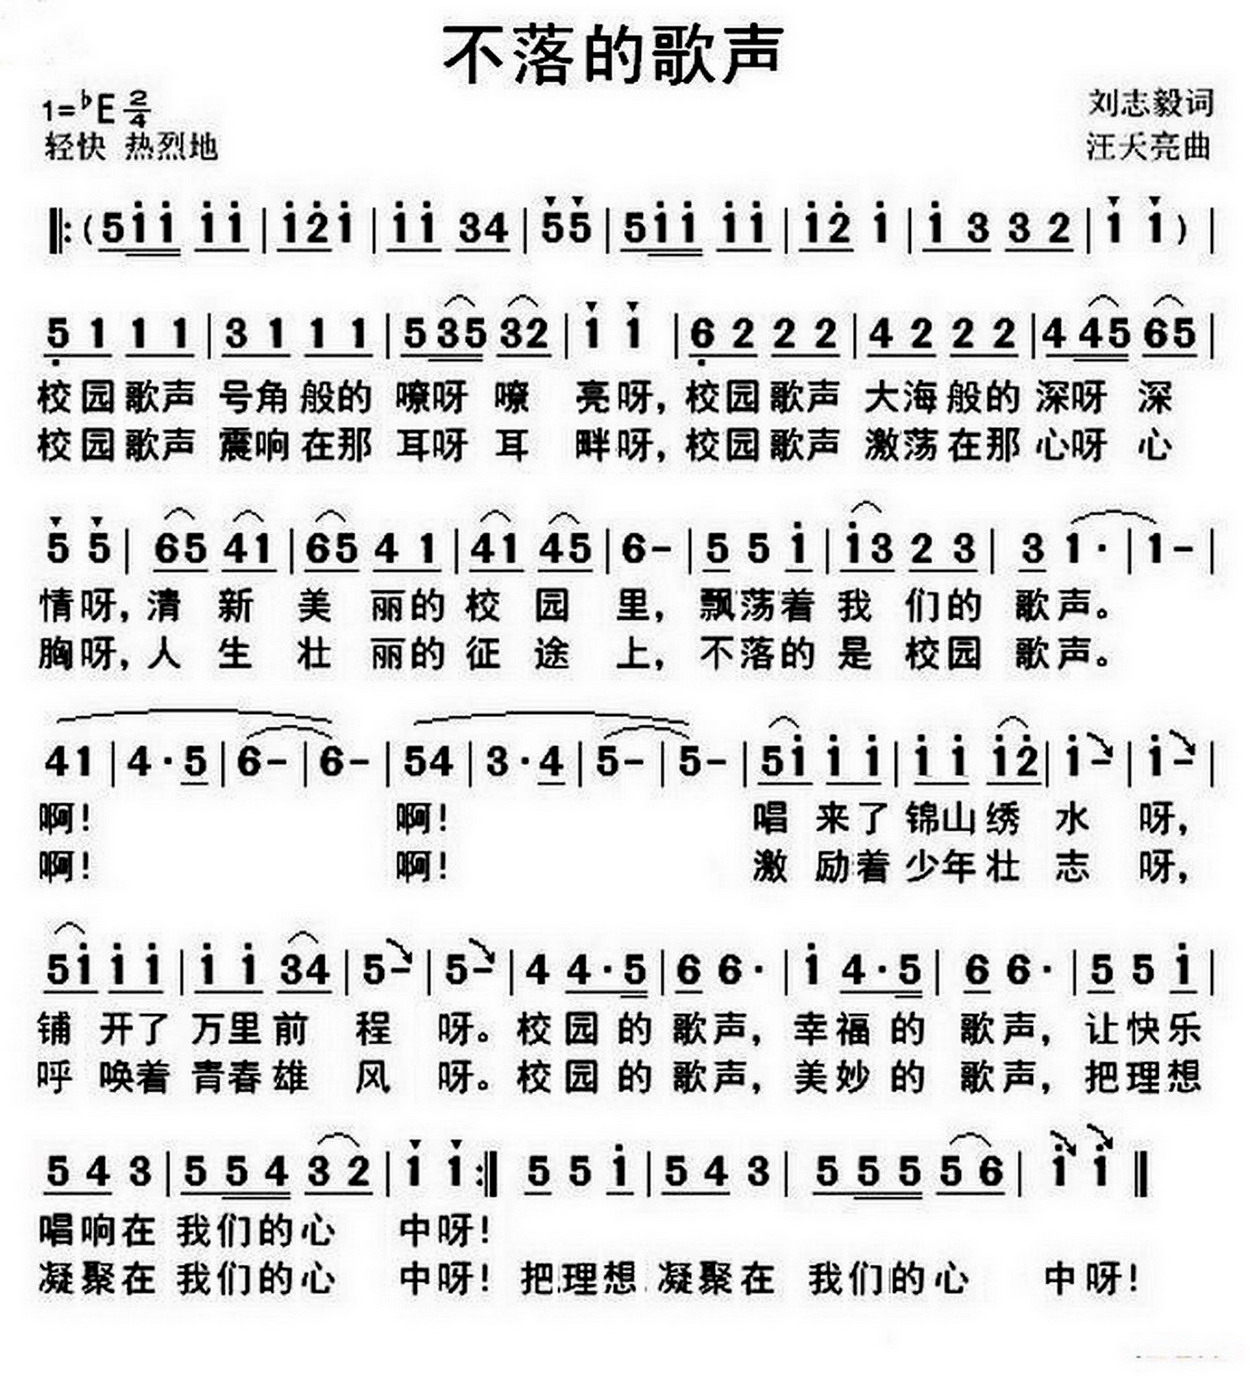 不落的歌声
1=♭E 2/4
刘志毅词
轻快 热烈地
汪天亮曲
‖:( 5i̇i̇ i̇i̇ | i̇2̇i̇ | i̇i̇ 34 | 55 | 5i̇i̇ i̇i̇ | i̇2̇ i̇ | i̇ 3 3 2 | 1 1 ) |
5̣ 1 1 1 | 3 1 1 1 | 5 35 32 | 1 1 | 6̣ 2 2 2 | 4 2 2 2 | 4 45 65 |
校园歌声 号角般的 嘹呀 嘹 亮呀, 校园歌声 大海般的 深呀 深
校园歌声 震响在那 耳呀 耳 畔呀, 校园歌声 激荡在那 心呀 心
5 5 | 65 41 | 65 4 1 | 41 45 | 6- | 5 5 i̇ | i̇3 2 3 | 3 1· | 1- |
情呀, 清 新 美 丽的 校 园 里, 飘荡着 我 们的 歌声。
胸呀, 人 生 壮 丽的 征 途 上, 不落的 是 校园 歌声。
41 | 4·5 | 6- | 6- | 54 | 3·4 | 5- | 5- | 5i̇ i̇ i̇ | i̇ i̇ i̇2̇ | i̇- | i̇- |
啊! 啊! 唱 来了 锦山绣 水 呀,
啊! 啊! 激 励着 少年壮 志 呀,
5i̇ i̇ i̇ | i̇ i̇ 34 | 5- | 5- | 4 4·5 | 6 6· | i̇ 4·5 | 6 6· | 5 5 i̇ |
铺 开了 万里前 程 呀。校园的 歌声, 幸福的 歌声, 让快乐
呼 唤着 青春雄 风 呀。校园的 歌声, 美妙的 歌声, 把理想
5 4 3 | 5 5 4 3 2 | 1 1 :‖ 5 5 i̇ | 5 4 3 | 5 5 5 5 6 | i̇ i̇ ‖
唱响在 我们的心 中呀!
凝聚在 我们的心 中呀! 把理想 凝聚在 我们的心 中呀!